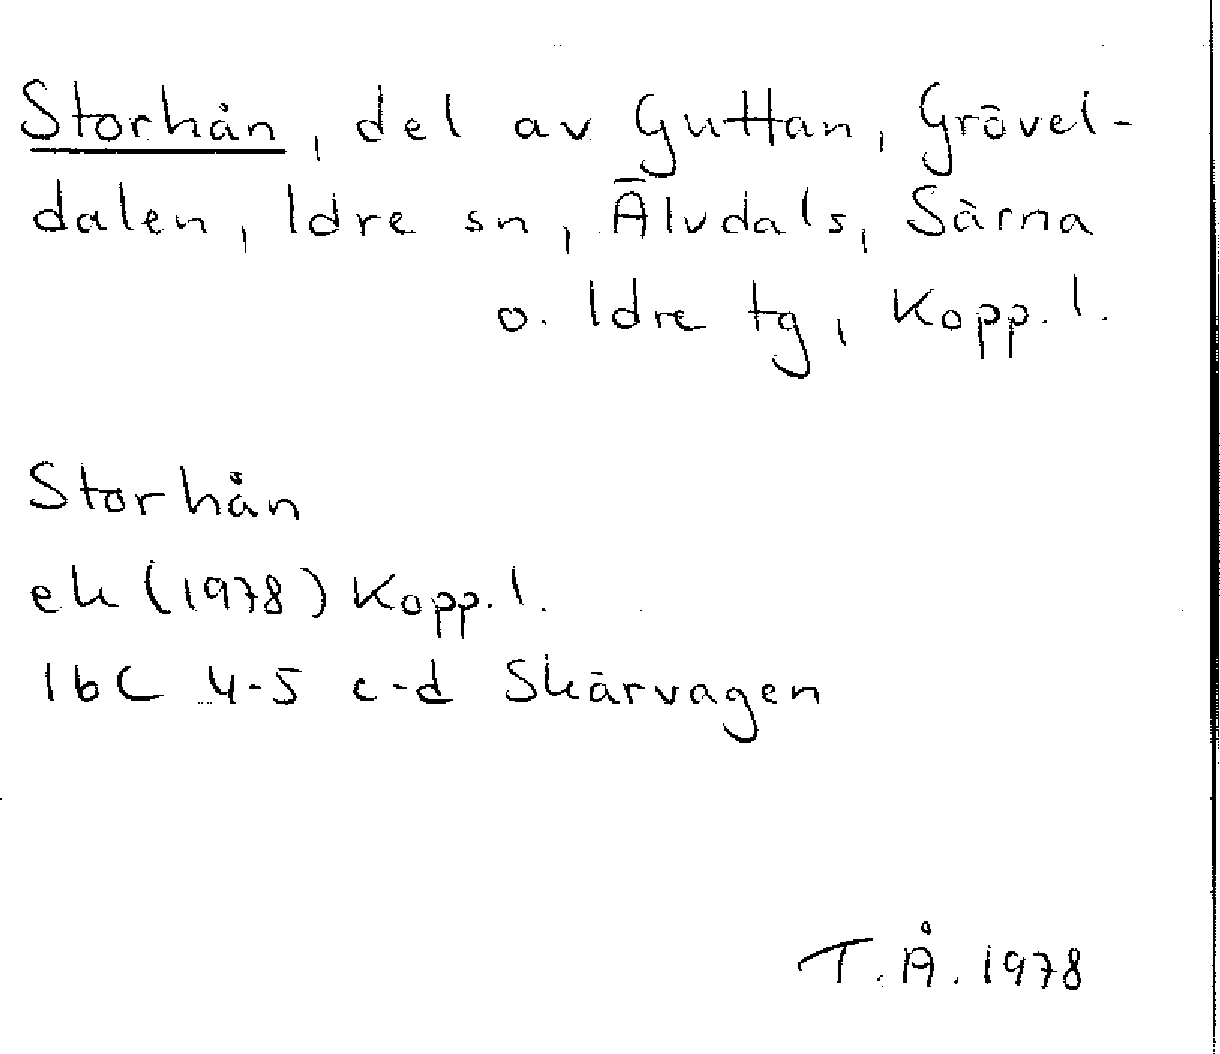 Storhån, del av Guttan, Grövel-
dalen, Idre sn, Älvdals, Särna
o. Idre tg, Kopp. l.
Storhån
ek (1978) Kopp. l.
16C 4-5 c-d Skärvagen
T.Å. 1978